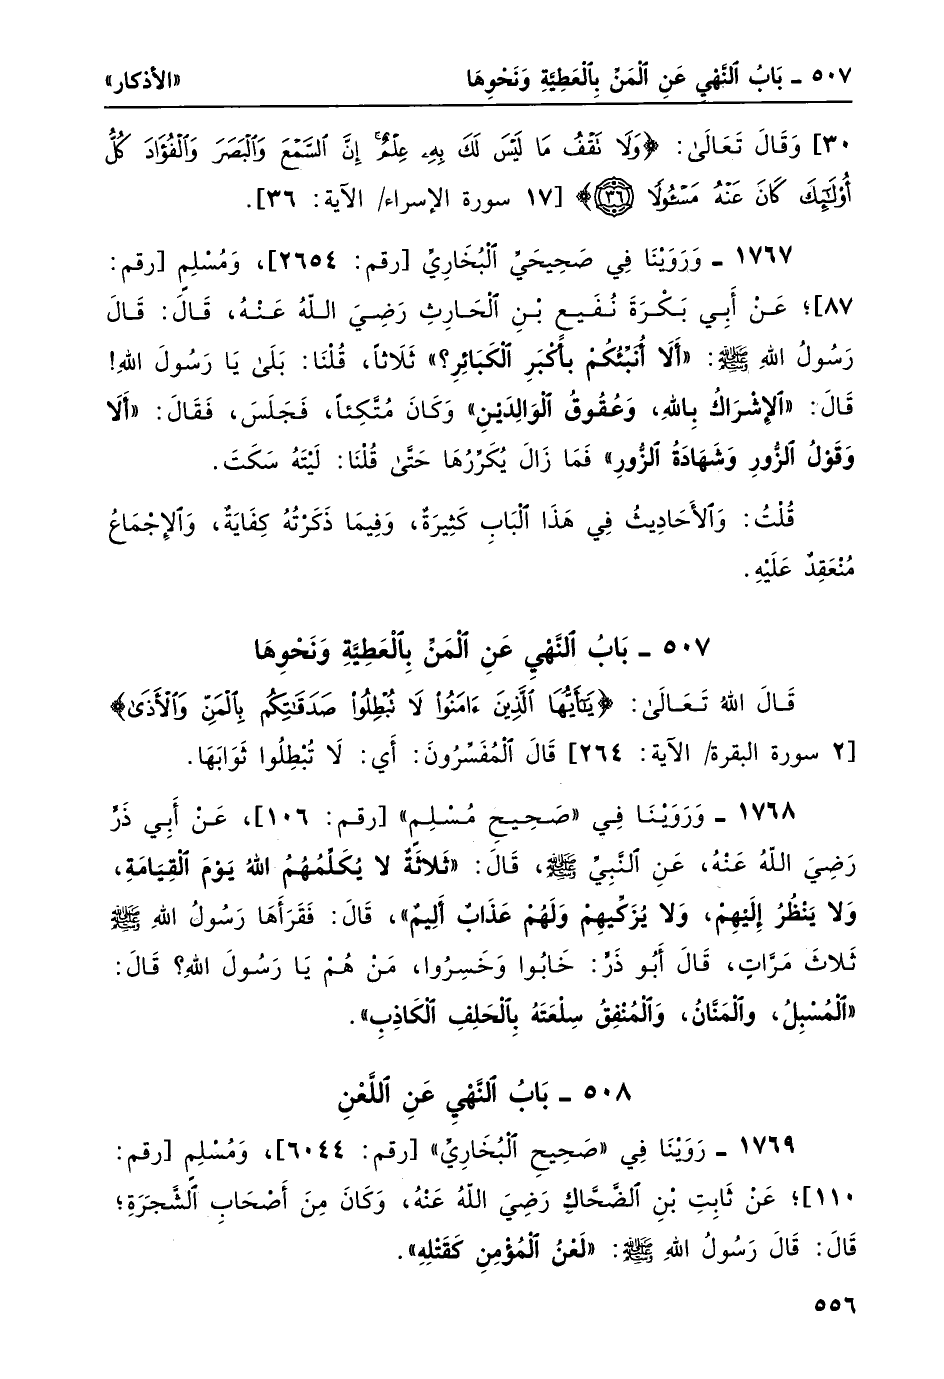 ٥٠٧ ـ بَابُ ٱلنَّهْيِ عَنِ ٱلْمَنِّ بِٱلْعَطِيَّةِ وَنَحْوِهَا «الأذكار»
٣٠] وَقَالَ تَعَالَىٰ: ﴿وَلَا تَقْفُ مَا لَيْسَ لَكَ بِهِۦ عِلْمٌۚ إِنَّ ٱلسَّمْعَ وَٱلْبَصَرَ وَٱلْفُؤَادَ كُلُّ
أُوْلَـٰٓئِكَ كَانَ عَنْهُ مَسْـُٔولًا ٣٦﴾ [١٧ سورة الإسراء/ الآية: ٣٦].
١٧٦٧ ـ وَرَوَيْنَا فِي صَحِيحَيِّ ٱلْبُخَارِيِّ [رقم: ٢٦٥٤]، وَمُسْلِمٍ [رقم:
٨٧]؛ عَنْ أَبِي بَكْرَةَ نُفَيعِ بْنِ ٱلْحَارِثِ رَضِيَ اللّهُ عَنْهُ، قَالَ: قَالَ
رَسُولُ اللهِ ﷺ: «أَلَا أُنَبِّئُكُمْ بِأَكْبَرِ ٱلْكَبَائِرِ؟» ثَلَاثاً، قُلْنَا: بَلَىٰ يَا رَسُولَ اللهِ!
قَالَ: «ٱلإِشْرَاكُ بِاللهِ، وَعُقُوقُ ٱلْوَالِدَيْنِ» وَكَانَ مُتَّكِئاً، فَجَلَسَ، فَقَالَ: «أَلَا
وَقَوْلُ ٱلزُّورِ وَشَهَادَةُ ٱلزُّورِ» فَمَا زَالَ يُكَرِّرُهَا حَتَّىٰ قُلْنَا: لَيْتَهُ سَكَتَ.
قُلْتُ: وَٱلأَحَادِيثُ فِي هَذَا ٱلْبَابِ كَثِيرَةٌ، وَفِيمَا ذَكَرْتُهُ كِفَايَةٌ، وَٱلإِجْمَاعُ
مُنْعَقِدٌ عَلَيْهِ.
٥٠٧ ـ بَابُ ٱلنَّهْيِ عَنِ ٱلْمَنِّ بِٱلْعَطِيَّةِ وَنَحْوِهَا
قَالَ اللهُ تَعَالَىٰ: ﴿يَـٰٓأَيُّهَا ٱلَّذِينَ ءَامَنُوا۟ لَا تُبْطِلُوا۟ صَدَقَـٰتِكُم بِٱلْمَنِّ وَٱلْأَذَىٰ﴾
[٢ سورة البقرة/ الآية: ٢٦٤] قَالَ ٱلْمُفَسِّرُونَ: أَي: لَا تُبْطِلُوا ثَوَابَهَا.
١٧٦٨ ـ وَرَوَيْنَا فِي «صَحِيحِ مُسْلِمٍ» [رقم: ١٠٦]، عَنْ أَبِي ذَرٍّ
رَضِيَ اللّهُ عَنْهُ، عَنِ ٱلنَّبِيِّ ﷺ، قَالَ: «ثَلاثَةٌ لا يُكَلِّمُهُمُ اللهُ يَوْمَ ٱلْقِيَامَةِ،
وَلا يَنْظُرُ إِلَيْهِمْ، وَلا يُزَكِّيهِمْ وَلَهُمْ عَذَابٌ أَلِيمٌ»، قَالَ: فَقَرَأَهَا رَسُولُ اللهِ ﷺ
ثَلاثَ مَرَّاتٍ، قَالَ أَبُو ذَرٍّ: خَابُوا وَخَسِرُوا، مَنْ هُمْ يَا رَسُولَ اللهِ؟ قَالَ:
«ٱلْمُسْبِلُ، وٱلْمَنَّانُ، وَٱلْمُنْفِقُ سِلْعَتَهُ بِٱلْحَلِفِ ٱلْكَاذِبِ».
٥٠٨ ـ بَابُ ٱلنَّهْيِ عَنِ ٱللَّعْنِ
١٧٦٩ ـ رَوَيْنَا فِي «صَحِيحِ ٱلْبُخَارِيِّ» [رقم: ٦٠٤٤]، وَمُسْلِمٍ [رقم:
١١٠]؛ عَنْ ثَابِتِ بْنِ ٱلضَّحَّاكِ رَضِيَ اللّهُ عَنْهُ، وَكَانَ مِنَ أَصْحَابِ ٱلشَّجَرَةِ؛
قَالَ: قَالَ رَسُولُ اللهِ ﷺ: «لَعْنُ ٱلْمُؤْمِنِ كَقَتْلِهِ».
٥٥٦